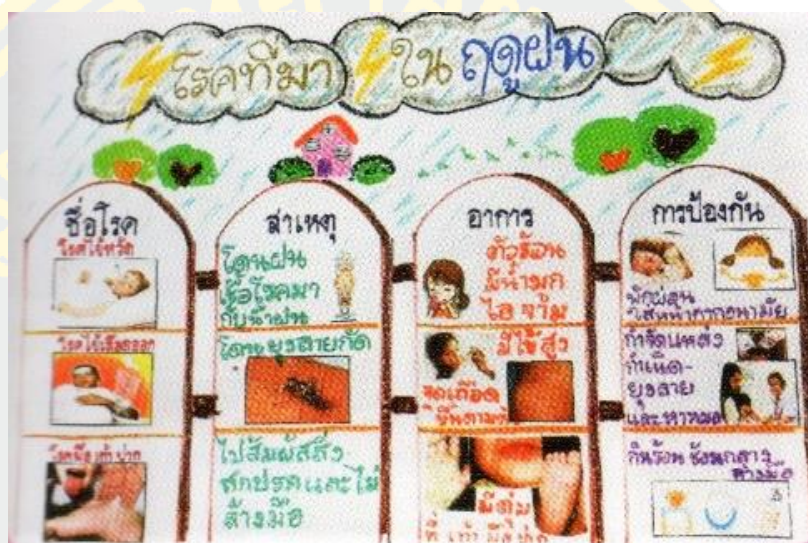 โรคที่มา ในฤดูฝน
ชื่อโรค
โรคไข้หวัด
โรคไข้เลือดออก
โรคมือ เท้า ปาก
สาเหตุ
โดนฝน
เชื้อโรคมา
กับน้ำฝน
โดนยุงลายกัด
ไปสัมผัสสิ่ง
สกปรกและไม่
ล้างมือ
อาการ
ตัวร้อน
มีน้ำมูก
ไอ จาม
มีไข้สูง
จุดเลือด
ขึ้นตาม
มีตุ่ม
ที่ เท้า มือ ปาก
การป้องกัน
พักผ่อน
ใส่หน้ากากอนามัย
กำจัดแหล่ง
กำเนิด-
ยุงลาย
และหาหมอ
กินร้อน ช้อนกลาง
ล้างมือ